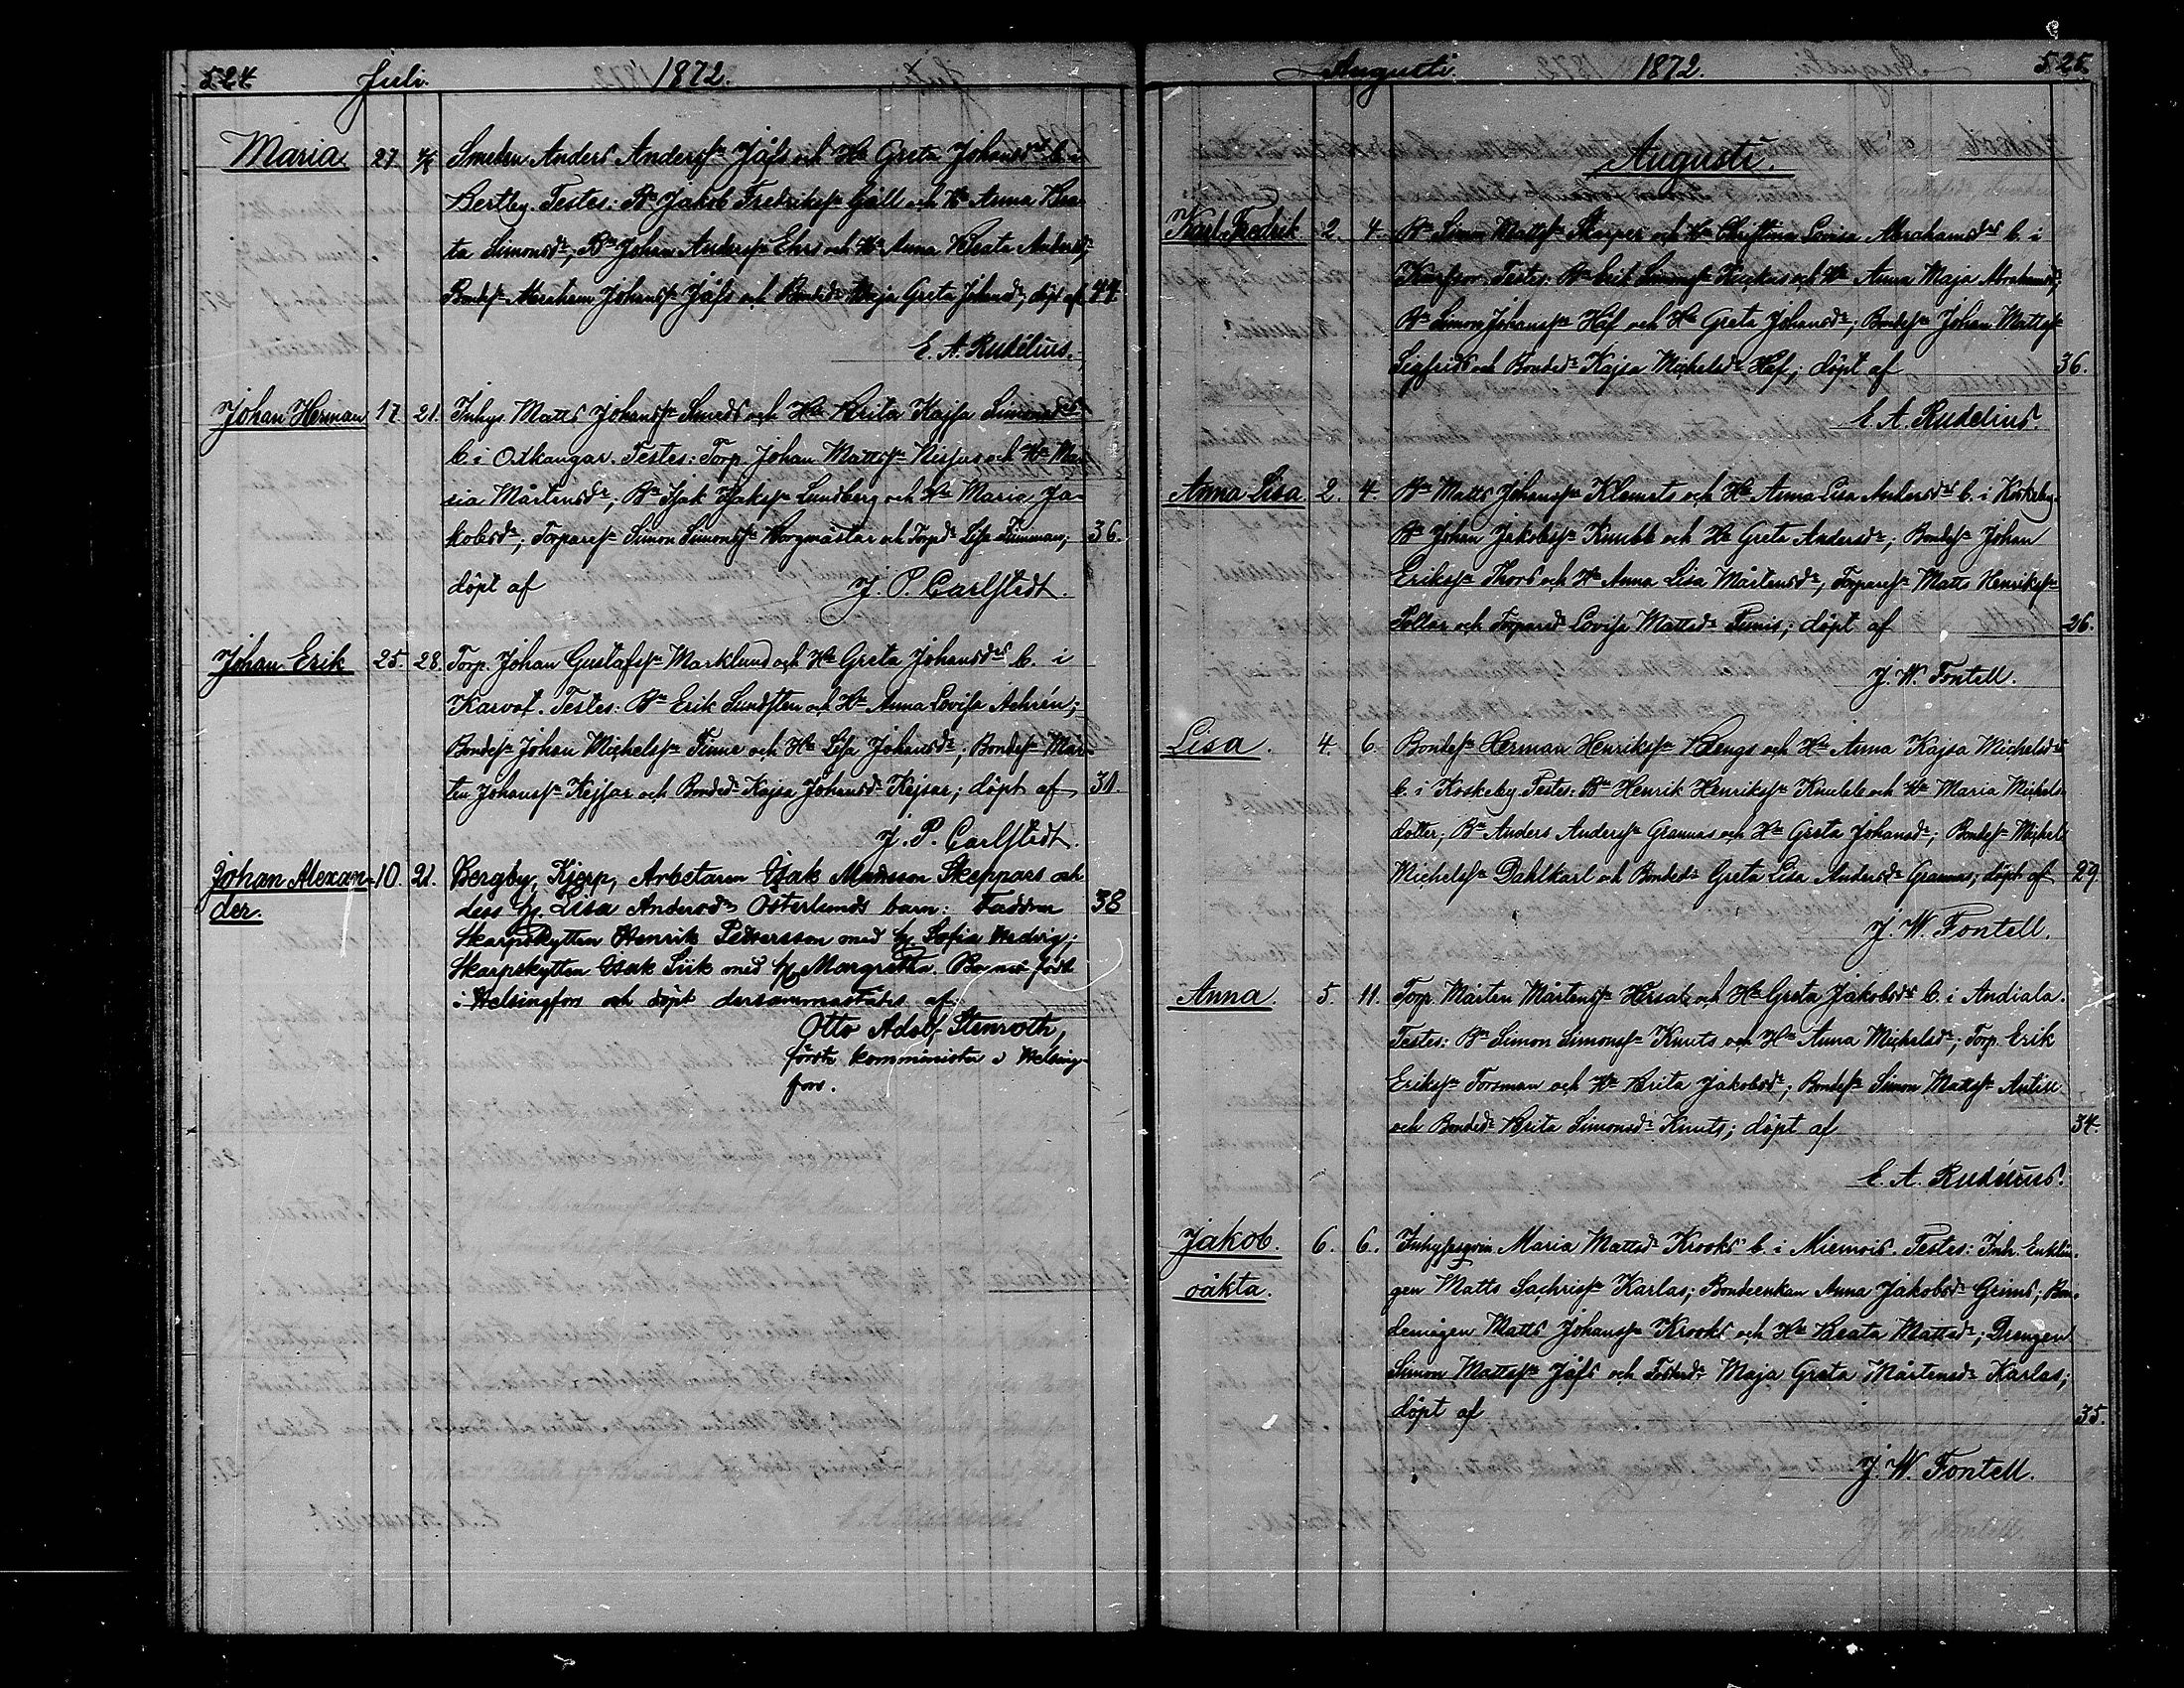 524. Juli. 1872.
Maria 27. 4/8 Smeden Anders Anderss:n Jåfs och H:u Greta Johansd:rs b. i
Bertby. Testes: B:n Jakob Fredrikss:n Gåll och H:u Anna Bea-
ta Simonsd:r; B:n Johan Anderss:n Ehrs och H:u Anna Beata Andersd:r;
Bondes:n Abraham Johanss:n Jåfs och Bonded:r Maja Greta Johansd:r; döpt af 44.
E. A. Rudelius.
Johan Herman 17. 21. Inhys. Matts Johanss:n Smeds och H:u Brita Kajsa Simonsd:rs
b. i Oxkangar. Testes: Torp. Johan Mattss:n Nissas och H:u Ma-
ria Mårtensd:r; B:n Isak Isakss:n Lundberg och H:u Maria Ja-
kobsd:r; Torpares:n Simon Simonss:n Borgmästar och Torpd:r Lisa Timman; 36.
döpt af J. P. Carlstedt.
Johan Erik 25. 28. Torp. Johan Gustafss:n Marklund och H:u Greta Johansd:rs b. i
Karvat. Testes: B:n Erik Sundsten och H:u Anna Lovisa Achrén;
Bondes:n Johan Michelss:n Finne och H:u Lisa Johansd:r; Bondes:n Mår-
ten Johanss:n Kejsar och Bonded:r Kajsa Johansd:r Kejsar; döpt af 31.
J. P. Carlstedt.
Johan Alexan- 10. 21. Bergby, Kjerp, Arbetaren Isak Madsson Skeppars och
der. dess h. Lisa Andersd:r Österlunds barn: Faddrar 38
Skarpskytten Henrik Pettersson med h. Sofia Hedvig;
Skarpskytten Isak Siik med h. Margretha. Barnet födt
i Helsingfors och döpt dersammastädes af
Otto Adolf Stenroth,
förste kommunister i Helsing-
fors.
Augusti. 1872. 525.
Augusti.
Karl Fredrik 2. 4. B:n Simon Mattss:n Kasper och H:u Christina Lovisa Abrahamsd:rs b. i
Testes: B:n Erik Simonss:n och H:u Anna Maja Abrahamsd:r;
B:n Simon Johanss:n Häf och H:u Greta Johansd:r; Bondes:n Johan Mattss:n
Sigfrids och Bonded:r Kajsa Michelsd:r Häf; döpt af 36.
E. A. Rudelius.
Anna Lisa 2. 4. B:n Matts Johanss:n Klemets och H:u Anna Lisa Andersd:rs b. i Koskeby.
B:n Johan Jakobss:n Knubb och H:u Greta Andersd:r; Bondes:n Johan
Erikss:n Thors och H:u Anna Lisa Mårtensd:r; Torpares:n Matts Henrikss:n
Pollar och Torpared:r Lovisa Mattsd:r Punis; döpt af 26.
J. W. Fontell.
Lisa. 4. 6. Bondes:n Herman Henrikss:n Bengs och H:u Anna Kajsa Michelsd:rs
b. i Koskeby. Testes: B:n Henrik Henrikss:n Knubb och H:u Maria Michels-
dotter; B:n Anders Anderss:n Grannas och H:u Greta Johansd:r; Bondes:n Michel
Michelss:n Dahlkarl och Bonded:r Greta Lisa Andersd:r Grannas; döpt af 29
J. W. Fontell.
Anna. 5. 11. Torp. Mårten Mårtenss:n Hersatz och H:u Greta Jakobsd:rs b. i Andiala.
Testes: B:n Simon Simonss:n Knuts och H:u Anna Michelsd:r; Torp. Erik
Erikss:n Forsman och H:u Brita Jakobsd:r; Bondes:n Simon Mattss:n Antise
och Bonded:r Brita Simonsd:r Knuts; döpt af 34.
E. A. Rudelius.
Jakob. 6. 6. Inhysesqvin. Maria Mattsd:r Krooks b. i Miemois. Testes: Inh. Enklin-
oäkta. gen Matts Sachriss:n Karlas; Bondeenkan Anna Jakobsd:r Grims; Bon-
demågen Matts Johanss:n Krooks och H:u Beata Mattsd:r; Drengen
Simon Mattss:n Jåfs och Fosterd:r Maja Greta Mårtensd:r Karlas;
döpt af 35.
J. W. Fontell.